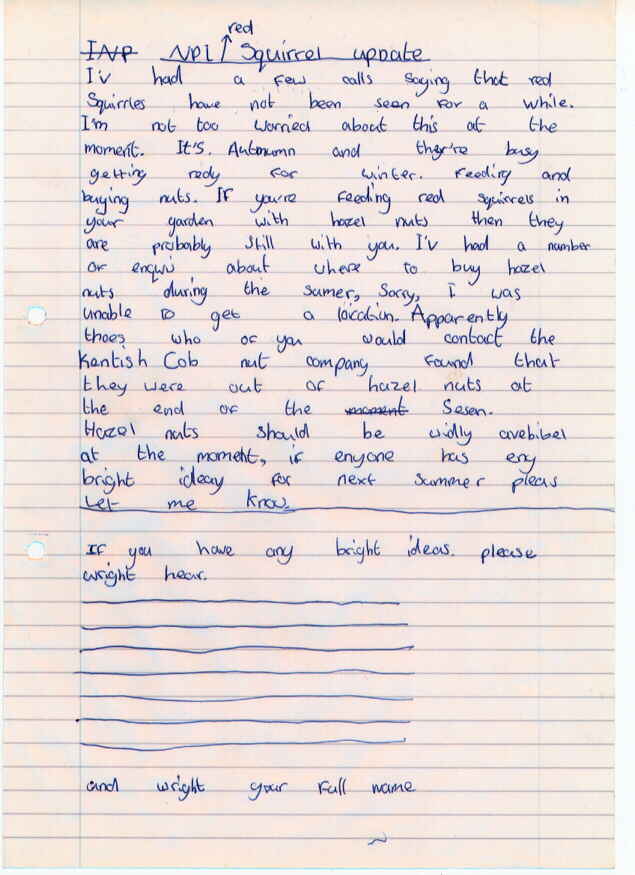 INP NPI red Squirrel update
I'v had a few calls saying that red
Squirrles have not been seen for a while.
I'm not too worried about this at the
moment. It's. Autmumn and they're busy
getting redy for winter. Feeding and
buying nuts. If you're feeding red squirrels in
your garden with hazel nuts then they
are probably still with you. I'v had a number
of about where to buy hazel
nuts during the sumer, Sorry, I was
unable to get a location. Apparently
thoes who of you would contact the
Kentish Cob nut company found that
they were out of hazel nuts at
the end of the moment Sesen.
Hazel nuts should be widly avebibel
at the moment, if enyone has eny
bright ideay for next summer pleas
Let me know.
If you have any bright ideas. please
wright hear.
and wright your full name